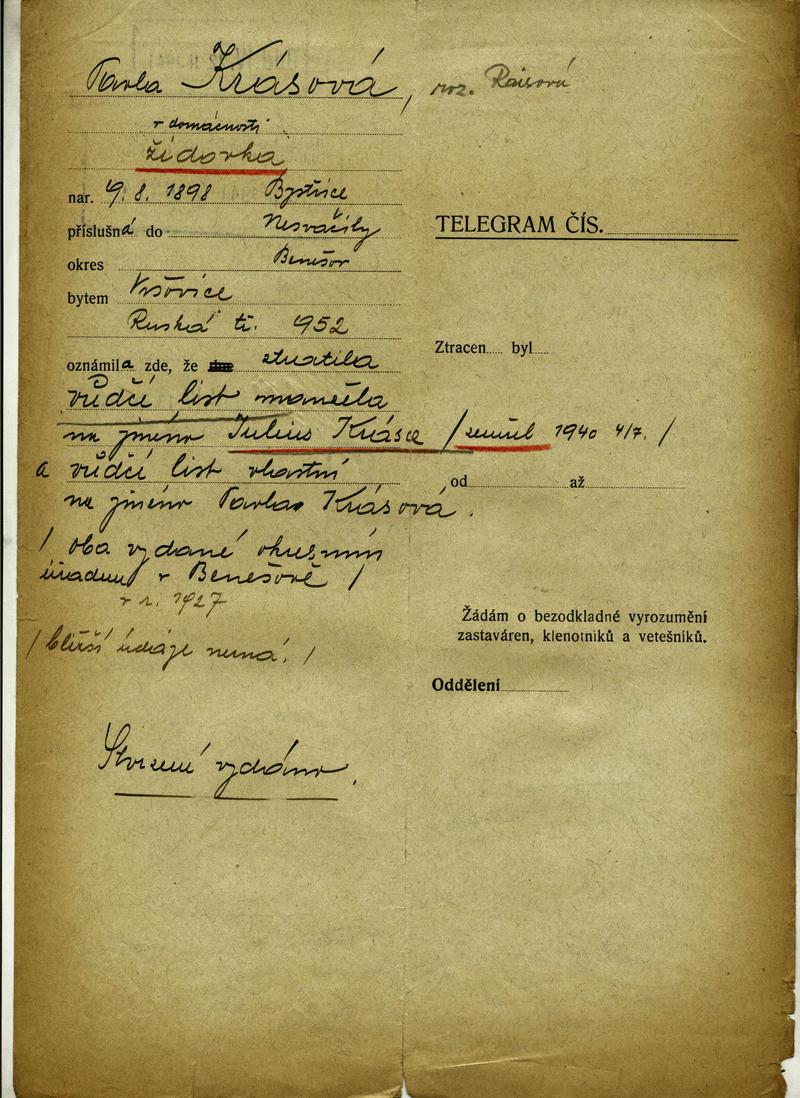 Pavla Krásová, roz. Raisová
v domácnosti
židovka
nar. 9. 8. 1898 Bystřice
příslušná do Neveklov
okres Benešov
bytem Vršovice
Ruská tř. 952
oznámila zde, že ztratila
vůdčí list manžela
na jméno Julius Krása /zemřel 1940 4/7. /
a vůdčí list vlastní
na jméno Pavla Krásová.
/ Oba vydané okresním
úřadem v Benešově /
v r. 1927
/ bližší údaje nemá. /
Stvrzení vydáno.
TELEGRAM ČÍS.
Ztracen byl
od až
Žádám o bezodkladné vyrozumění
zastaváren, klenotníků a vetešníků.
Oddělení